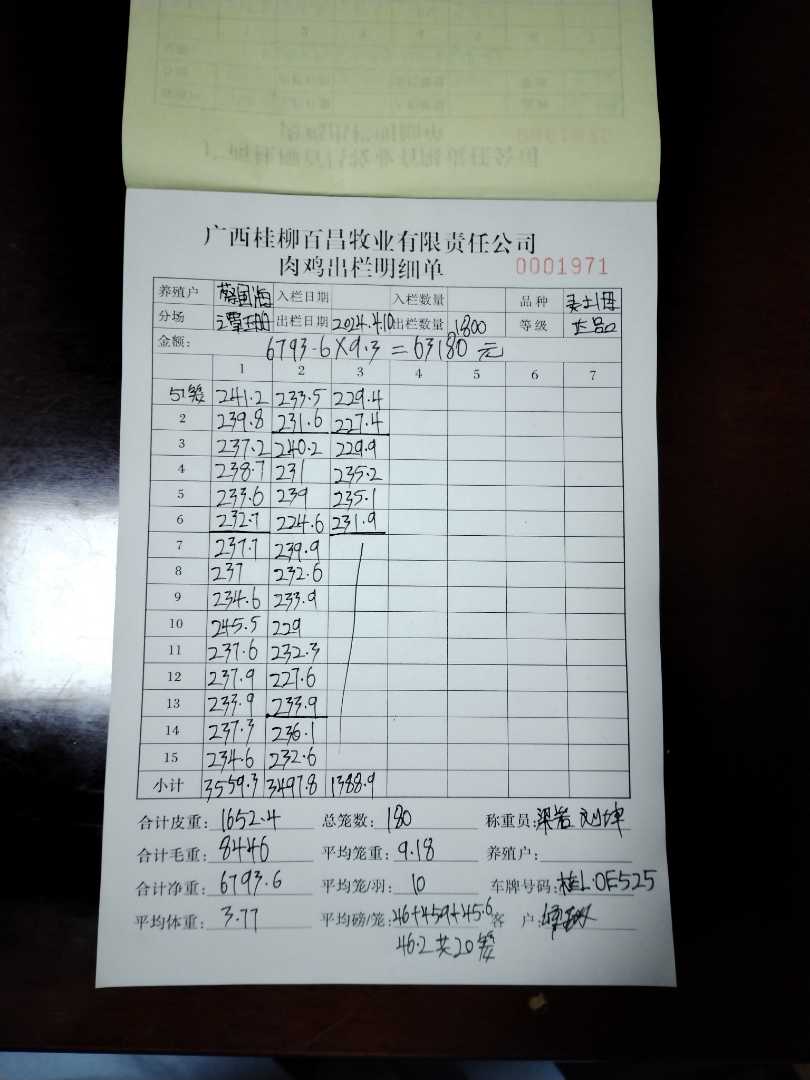 广西桂柳百昌牧业有限责任公司
肉鸡出栏明细单 0001971
养殖户 蔡国海 入栏日期 入栏数量 品种 麦土1母
分场 出栏日期 2024.4.10 出栏数量 1800 等级
金额: 6793.6×9.3=63180元
1 2 3 4 5 6 7
241.2 233.5 229.4
2 239.8 231.6 227.4
3 237.2 240.2 229.9
4 238.7 231 235.2
5 233.6 239 235.1
6 232.7 224.6 231.9
7 237.7 239.9
8 237 232.6
9 234.6 233.9
10 245.5 229
11 237.6 232.3
12 237.9 227.6
13 233.9 233.9
14 237.3 236.1
15 234.6 232.6
小计 3559.3 3497.8 1388.9
合计皮重: 1652.4 总笼数: 180 称重员:
合计毛重: 8446 平均笼重: 9.18 养殖户:
合计净重: 6793.6 平均笼/羽: 10 车牌号码: 桂L·0E525
平均体重: 3.77 平均磅/笼: 46+45.9+45.6 客户:
46.2共20笼